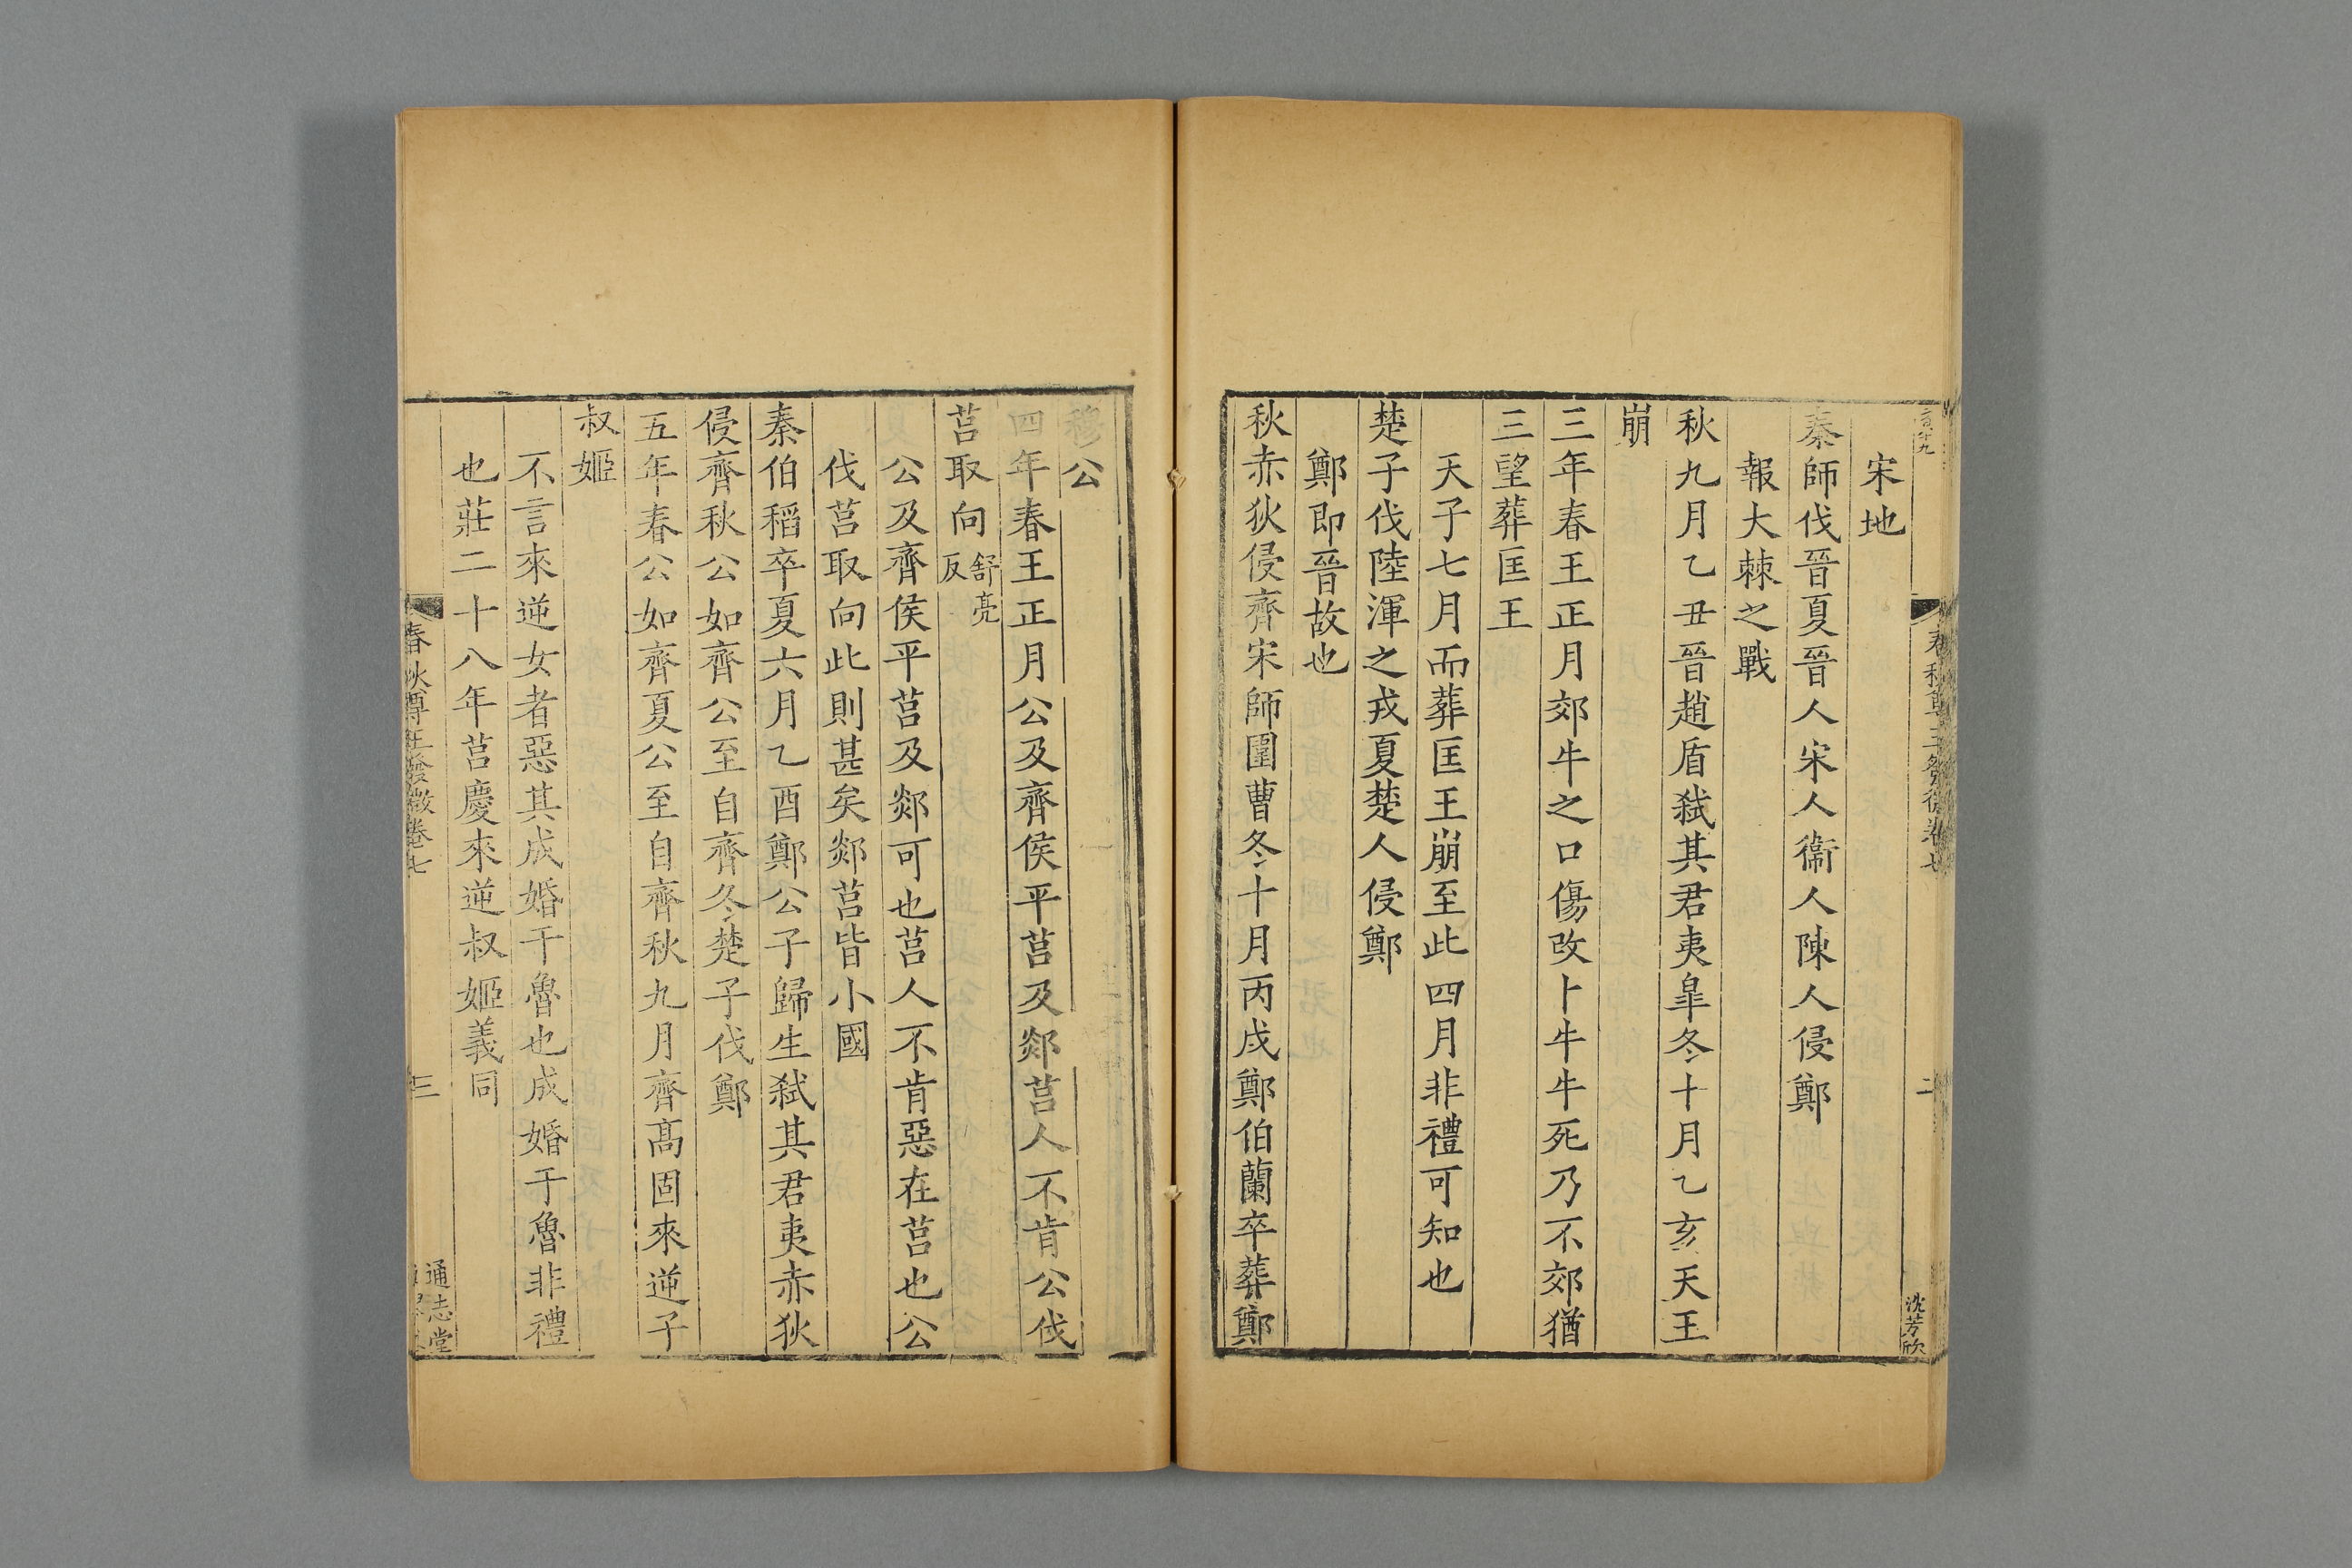 宋地
秦師伐晉夏晉人宋人衞人陳人侵鄭
報大棘之戰
秋九月乙丑晉趙盾弑其君夷皐冬十月乙亥天王
崩
三年春王正月郊牛之口傷改卜牛牛死乃不郊猶
三望葬匡王
天子七月而葬匡王崩至此四月非禮可知也
楚子伐陸渾之戎夏楚人侵鄭
鄭即晉故也
秋赤狄侵齊宋師圍曹冬十月丙戌鄭伯蘭卒葬鄭
沈芳欣
穆公
四年春王正月公及齊侯平莒及郯莒人不肯公伐
莒取向舒亮反
公及齊侯平莒及郯可也莒人不肯惡在莒也公
伐莒取向此則甚矣郯莒皆小國
秦伯稻卒夏六月乙酉鄭公子歸生弑其君夷赤狄
侵齊秋公如齊公至自齊冬楚子伐鄭
五年春公如齊夏公至自齊秋九月齊髙固來逆子
叔姬
不言來逆女者惡其成婚于魯也成婚于魯非禮
也莊二十八年莒慶來逆叔姬義同
春秋尊王發微卷七
三
通志堂